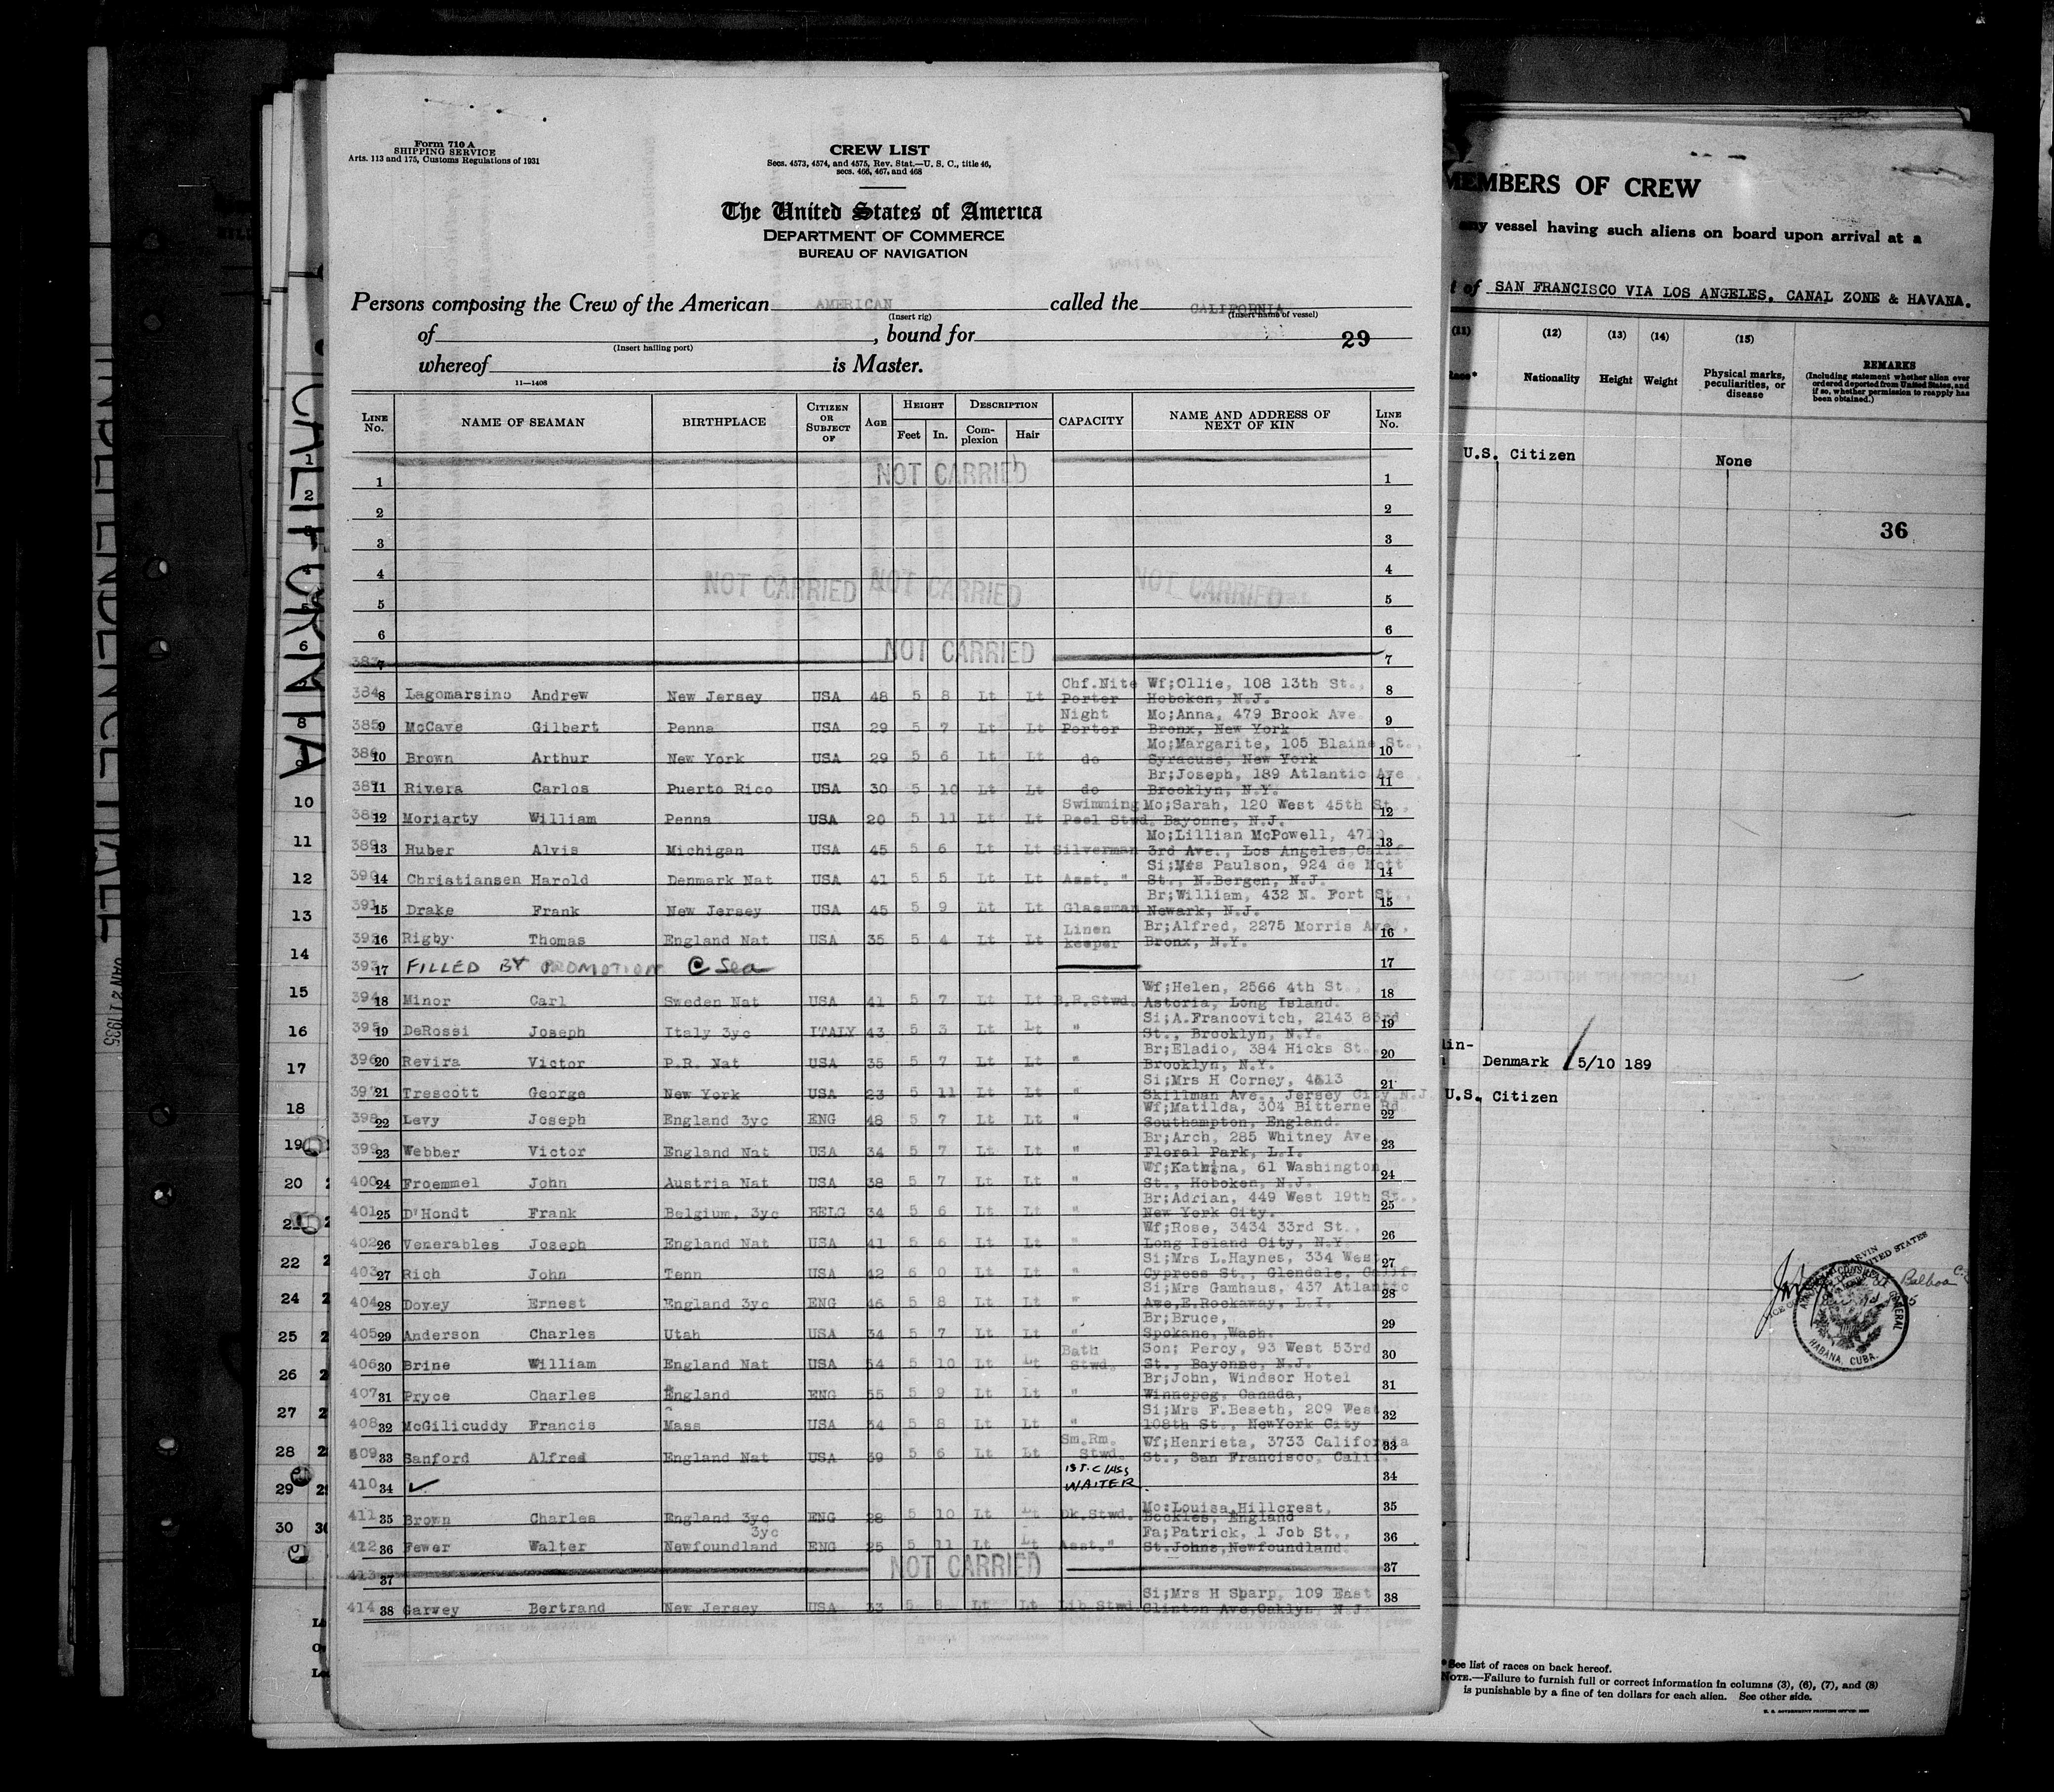 Form 710 A
SHIPPING SERVICE
Arts. 113 and 175, Customs Regulations of 1931
CREW LIST
Secs. 4573, 4574, and 4575, Rev. Stat.—U. S. C., title 46,
secs. 466, 467, and 468
The United States of America
DEPARTMENT OF COMMERCE
BUREAU OF NAVIGATION
Persons composing the Crew of the American AMERICAN called the CALIFORNIA
(Insert rig) (Insert name of vessel)
of , bound for 29
(Insert hailing port)
whereof is Master.
11—1408
LINE No. NAME OF SEAMAN BIRTHPLACE CITIZEN OR SUBJECT OF AGE HEIGHT Feet In. DESCRIPTION Complexion Hair CAPACITY NAME AND ADDRESS OF NEXT OF KIN LINE No.
1 NOT CARRIED 1
2 2
3 3
4 NOT CARRIED NOT CARRIED NOT CARRIED 4
5 5
6 6
383 7 NOT CARRIED 7
384 8 Lagomarsino Andrew New Jersey USA 48 5 8 Lt Lt Chf.Nite Porter Wf;Ollie, 108 13th St., Hoboken, N.J. 8
385 9 McCave Gilbert Penna USA 29 5 7 Lt Lt Night Porter Mo;Anna, 479 Brook Ave Bronx, New York 9
386 10 Brown Arthur New York USA 29 5 6 Lt Lt do Mo;Margarite, 105 Blaine St., Syracuse, New York 10
387 11 Rivera Carlos Puerto Rico USA 30 5 10 Lt Lt do Br;Joseph, 189 Atlantic Ave Brooklyn, N.Y. 11
388 12 Moriarty William Penna USA 20 5 11 Lt Lt Swimming Pool Stwd. Mo;Sarah, 120 West 45th St., Bayonne, N.J. 12
389 13 Huber Alvis Michigan USA 45 5 6 Lt Lt Silverman Mo;Lillian McPowell, 471 3rd Ave., Los Angeles,Calif. 13
390 14 Christiansen Harold Denmark Nat USA 41 5 5 Lt Lt Asst. " Si;Mrs Paulson, 924 de Mott St., N.Bergen, N.J. 14
391 15 Drake Frank New Jersey USA 45 5 9 Lt Lt Glassman Br;William, 432 N. Fort St., Newark, N.J. 15
392 16 Rigby Thomas England Nat USA 35 5 4 Lt Lt Linen keeper Br;Alfred, 2275 Morris Ave, Bronx, N.Y. 16
393 17 FILLED BY PROMOTION @ Sea 17
394 18 Minor Carl Sweden Nat USA 41 5 7 Lt Lt B.R.Stwd. Wf;Helen, 2566 4th St., Astoria, Long Island. 18
395 19 DeRossi Joseph Italy 3yc ITALY 43 5 3 Lt Lt " Si;A.Francovitch, 2143 83rd St., Brooklyn, N.Y. 19
396 20 Revira Victor P.R. Nat USA 35 5 7 Lt Lt " Br;Eladio, 384 Hicks St., Brooklyn, N.Y. 20
397 21 Trescott George New York USA 23 5 11 Lt Lt " Si;Mrs H Corney, Skillman Ave., Jersey City,N.J. 21
398 22 Levy Joseph England 3yc ENG 48 5 7 Lt Lt " Wf;Matilda, 304 Bitterne Rd. Southampton, England. 22
399 23 Webber Victor England Nat USA 34 5 7 Lt Lt " Br;Arch, 285 Whitney Ave Floral Park, L.I. 23
400 24 Froemmel John Austria Nat USA 38 5 7 Lt Lt " Wf;Kathina, 61 Washington St., Hoboken, N.J. 24
401 25 D'Hondt Frank Belgium, 3yc BELG 34 5 6 Lt Lt " Br;Adrian, 449 West 19th St., New York City. 25
402 26 Venerables Joseph England Nat USA 41 5 6 Lt Lt " Wf;Rose, 3434 33rd St., Long Island City, N.Y. 26
403 27 Rich John Tenn USA 42 6 0 Lt Lt " Si;Mrs L.Haynes, 334 West Cypress St., Glendale, Calif. 27
404 28 Dovey Ernest England 3yc ENG 46 5 8 Lt Lt " Si;Mrs Gamhaus, 437 Atlantic Ave,E.Rockaway, L.I. 28
405 29 Anderson Charles Utah USA 34 5 7 Lt Lt " Br;Bruce, Spokane, Wash. 29
406 30 Brine William England Nat USA 54 5 10 Lt Lt Bath Stwd. Son; Percy, 93 West 53rd St., Bayonne, N.J. 30
407 31 Pryce Charles England ENG 55 5 9 Lt Lt " Br;John, Windsor Hotel Winnepeg, Canada, 31
408 32 McGilicuddy Francis Mass USA 34 5 8 Lt Lt " Si;Mrs F.Beseth, 209 West 108th St., NewYork City 32
409 33 Sanford Alfred England Nat USA 39 5 6 Lt Lt Sm.Rm. Stwd. Wf;Henrieta, 3733 California St., San Francisco, Calif. 33
410 34 ✓ 1ST.CLASS WAITER. 34
411 35 Brown Charles England 3yc ENG 28 5 10 Lt Lt Dk.Stwd. Mo:Louisa,Hillcrest, Beckles, England 35
412 36 Fewer Walter Newfoundland 3yc ENG 25 5 11 Lt Lt Asst." Fa;Patrick, 1 Job St., St.Johns,Newfoundland. 36
413 37 NOT CARRIED 37
414 38 Garvey Bertrand New Jersey USA 33 5 8 Lt Lt Lib Stwd Si;Mrs H Sharp, 109 East Clinton Ave,Oaklyn, N.J. 38
CALIFORNIA
INDEPENDENCE HALL
JAN 21 1935
1
2
6
8
10
11
12
13
14
15
16
17
18
19
20
22
24
25
26
27
28
29
30
MEMBERS OF CREW
any vessel having such aliens on board upon arrival at a
of SAN FRANCISCO VIA LOS ANGELES, CANAL ZONE & HAVANA.
(11) (12) (13) (14) (15)
Race* Nationality Height Weight Physical marks, peculiarities, or disease REMARKS
(Including statement whether alien ever ordered deported from United States, and if so, whether permission to reapply has been obtained.)
U.S. Citizen None
36
Denmark 5/10 189
U.S. Citizen
Balboa
HABANA, CUBA.
*See list of races on back hereof.
NOTE.—Failure to furnish full or correct information in columns (3), (6), (7), and (8)
is punishable by a fine of ten dollars for each alien. See other side.